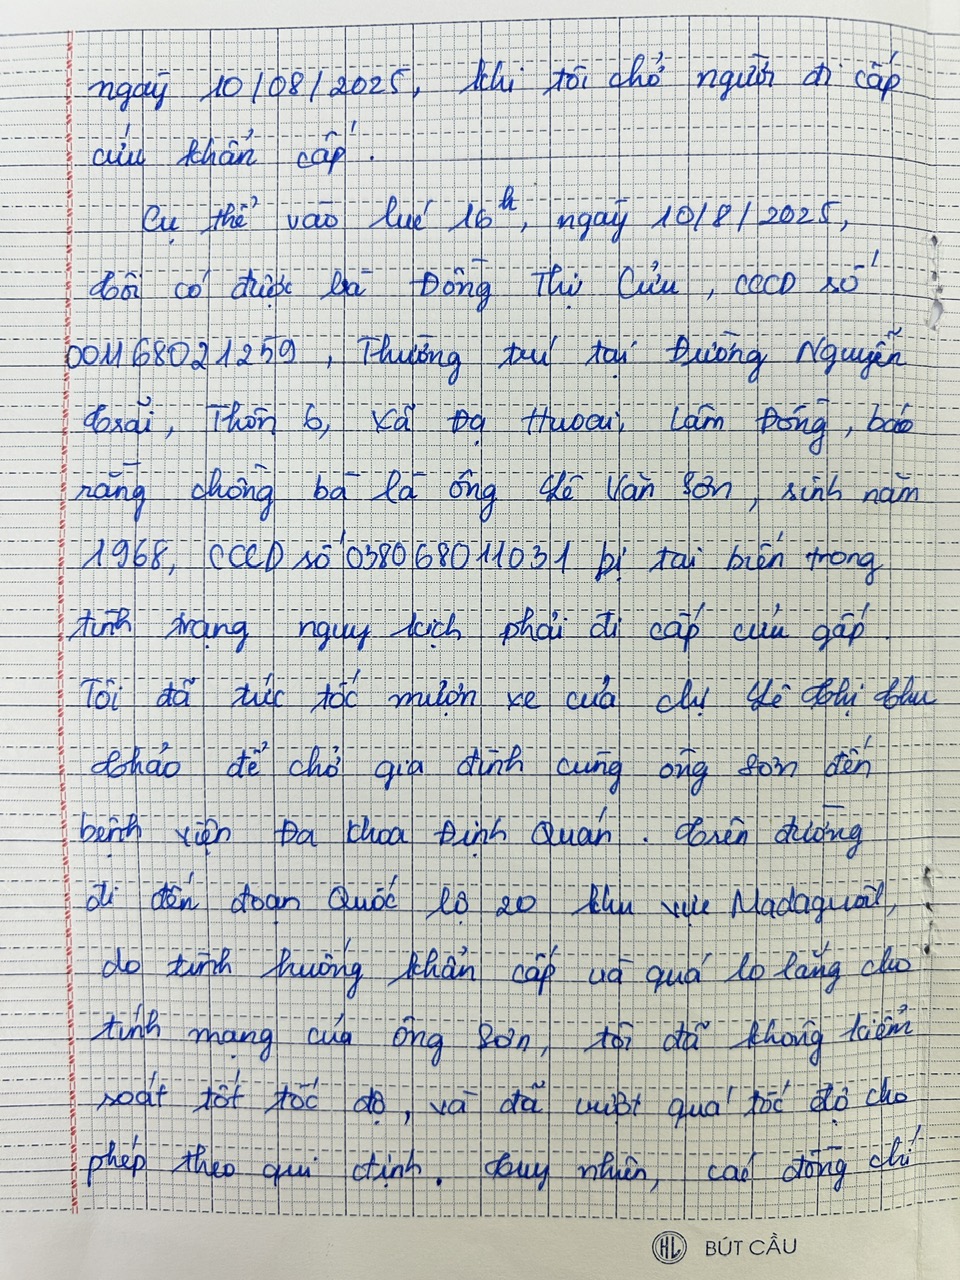 ngày 10/08/2025, khi tôi chở người đi cấp
cứu khẩn cấp.
Cụ thể vào lúc 16h, ngày 10/8/2025,
tôi có được bà Đồng Thị Cửu, CCCD số
001168021259, Thường trú tại Đường Nguyễn
Trãi, Thôn 6, Xã Đạ Huoai, Lâm Đồng, báo
rằng chồng bà là ông Lê Văn Sơn, sinh năm
1968, CCCD số 038068011031 bị tai biến trong
tình trạng nguy kịch phải đi cấp cứu gấp.
Tôi đã tức tốc mượn xe của chị Lê Thị Thu
Thảo để chở gia đình cùng ông Sơn đến
bệnh viện Đa khoa Định Quán. Trên đường
đi đến đoạn Quốc lộ 20 khu vực Madaguôi,
do tình huống khẩn cấp và quá lo lắng cho
tính mạng của ông Sơn, tôi đã không kiểm
soát tốt tốc độ, và đã vượt quá tốc độ cho
phép theo qui định. Tuy nhiên, các đồng chí
HL BÚT CẦU